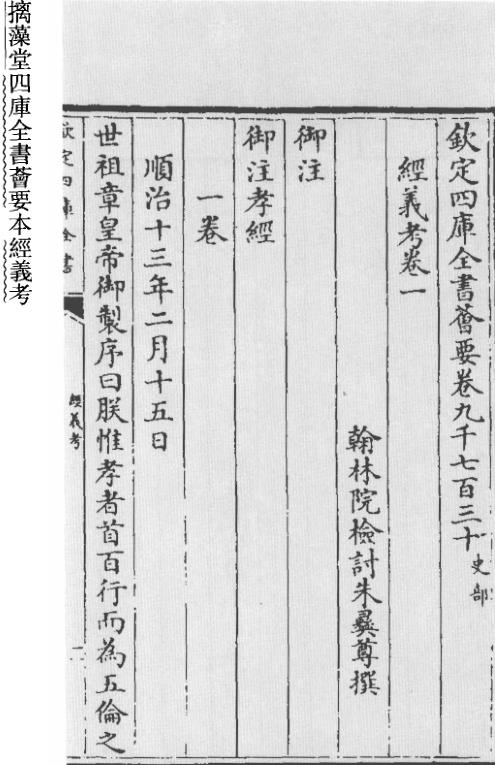 欽定四庫全書薈要卷九千七百三十史部
經義考卷一
翰林院檢討朱彝尊撰
御注
御注孝經
一卷
順治十三年二月十五日
世祖章皇帝御製序曰朕惟孝者首百行而為五倫之
欽定四庫全書
經義考
摛藻堂四庫全書薈要本經義考